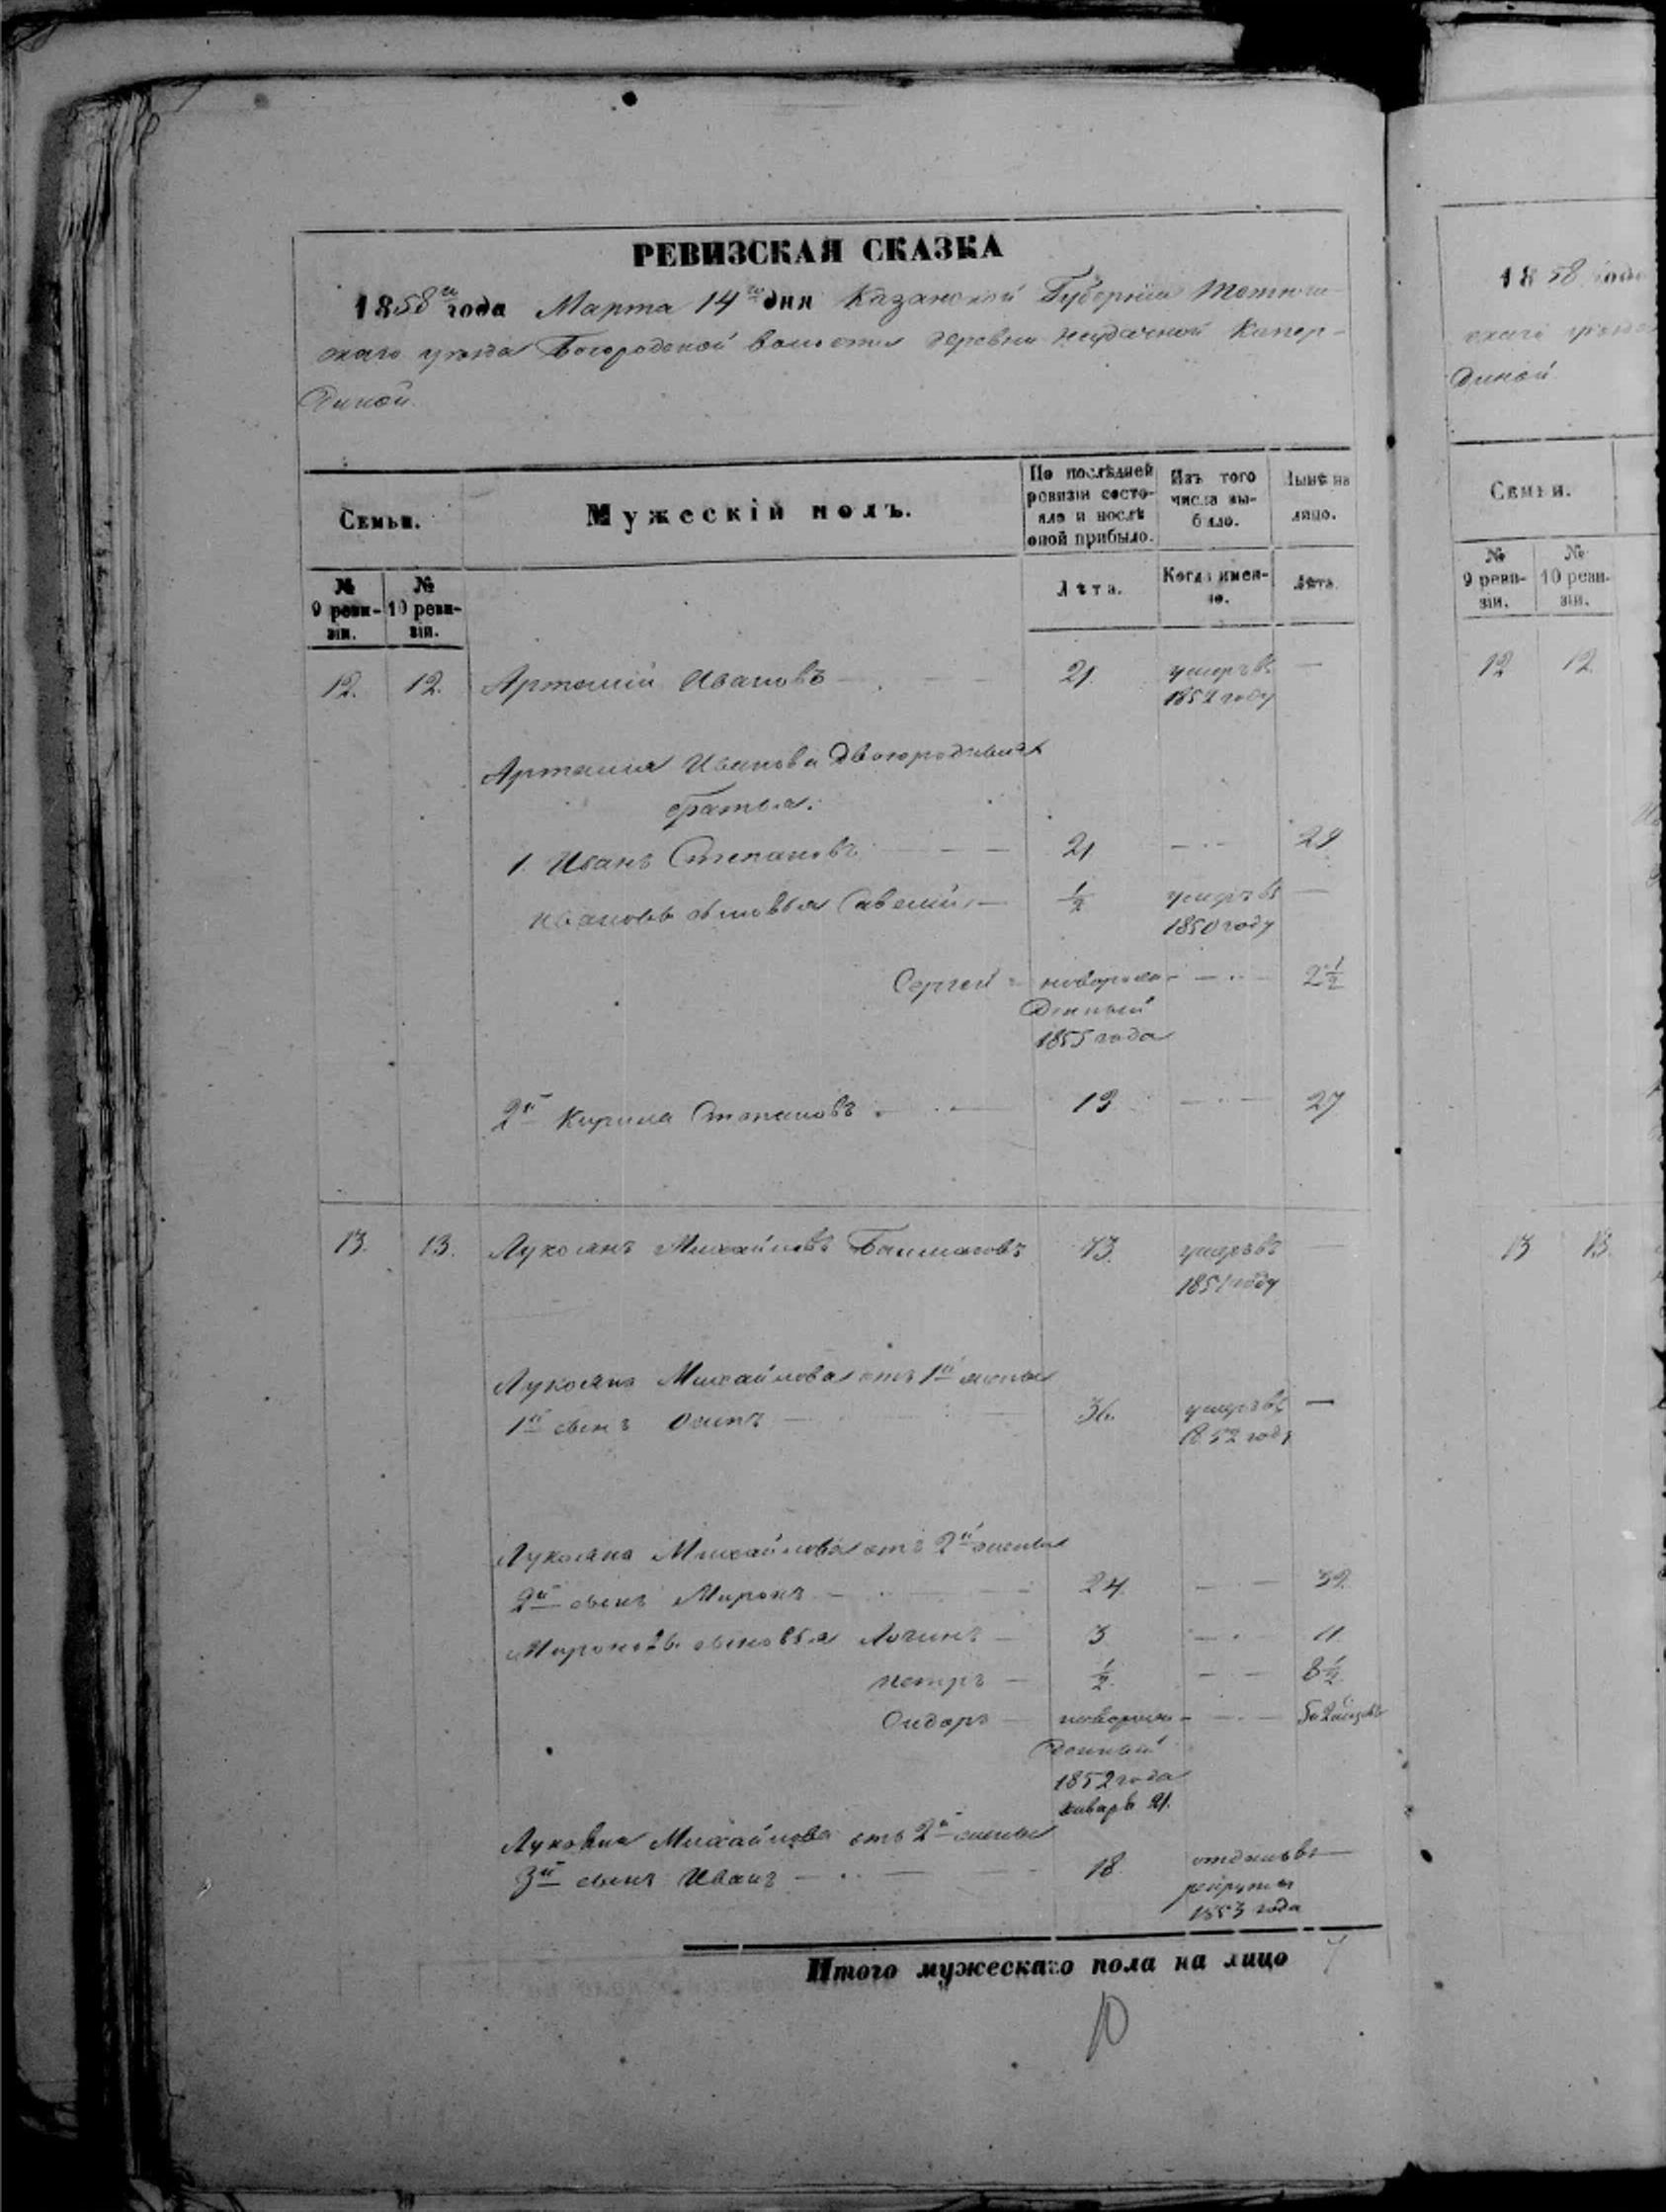 РЕВИЗСКАЯ СКАЗКА
1858го года Марта 14го дня Казанской Губернiи Тетюш-
скаго уѣзда Богородской волости деревни Неудачной Кипер-
диной
Семьи.
Мужескiй полъ.
По послѣдней ревизiи состо-
яло и послѣ оной прибыло.
Изъ того числа вы-
было.
Нынѣ на лицо.
№ 9 реви-
зiи.
№ 10 реви-
зiи.
Лѣта.
Когда имен-
но.
Лѣта.
12. 12. Артемiй Ивановъ 21. умеръ въ —
1852 году
Артемiя Иванова двоюродныя
братья:
1. Иванъ Степановъ 21 — 29
Ивановы сыновья Савелiй — ½ умеръ въ —
1850 году
Сергей новорож- — 2½
денный
1855 года
2й Кирила Степановъ 19 — 27
13. 13. Лукоянъ Михайловъ Башмаковъ 73. умеръ въ —
1851 году
Лукояна Михайлова отъ 1й жены
1й сынъ Осипъ — 36. умеръ въ —
1852 году
Лукояна Михайлова отъ 2й жены
2й сынъ Миронъ — 24. — 32.
Мироновы сыновья Логинъ — 3 — 11.
Петръ — ½ — 8½
Сидоръ — новорож- —
денный
1852 года
Январь 21.
Лукояна Михайлова отъ 2й жены
3й сынъ Иванъ — 18. отданъ въ —
рекруты
1853 года
Итого мужескаго пола на лицо 7
10
1858 года
скаго уѣзда
диной
Семьи.
№ 9 реви-
зiи.
№ 10 реви-
зiи.
12 12
13 13.